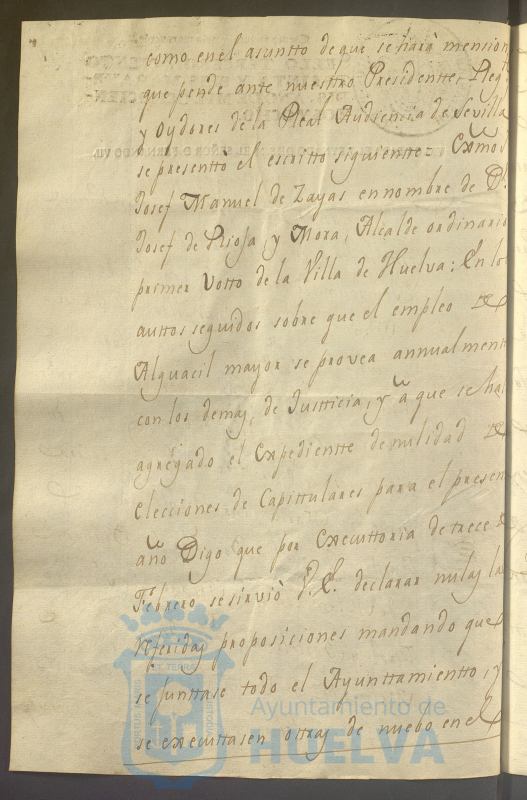 como en el asuntto de que se hará mencion
que pende ante nuesttro Presidentte, Reg.te
y Oydores de la Real Audiencia de Sevilla
se presenttó el escritto siguientte = Exmo S.
Josef Manuel de Zayas en nombre de D.n
Josef de Rioja y Mora, Alcalde ordinario
primer Votto de la Villa de Huelva: En los
auttos seguidos sobre que el empleo de
Alguacil mayor se provea annualmente
con los demas, de Justticia, y á que se ha
agregado el Expedientte de nulidad de
elecciones de Capittulares para el presen
año Digo que por Executtoria de trece de
Febrero se sirvió V.E. declarar nulas las
referidas proposiciones mandando que
se junttase todo el Ayunttamientto, y
se executtasen ottras de nuebo en el
Ayuntamiento de
HUELVA